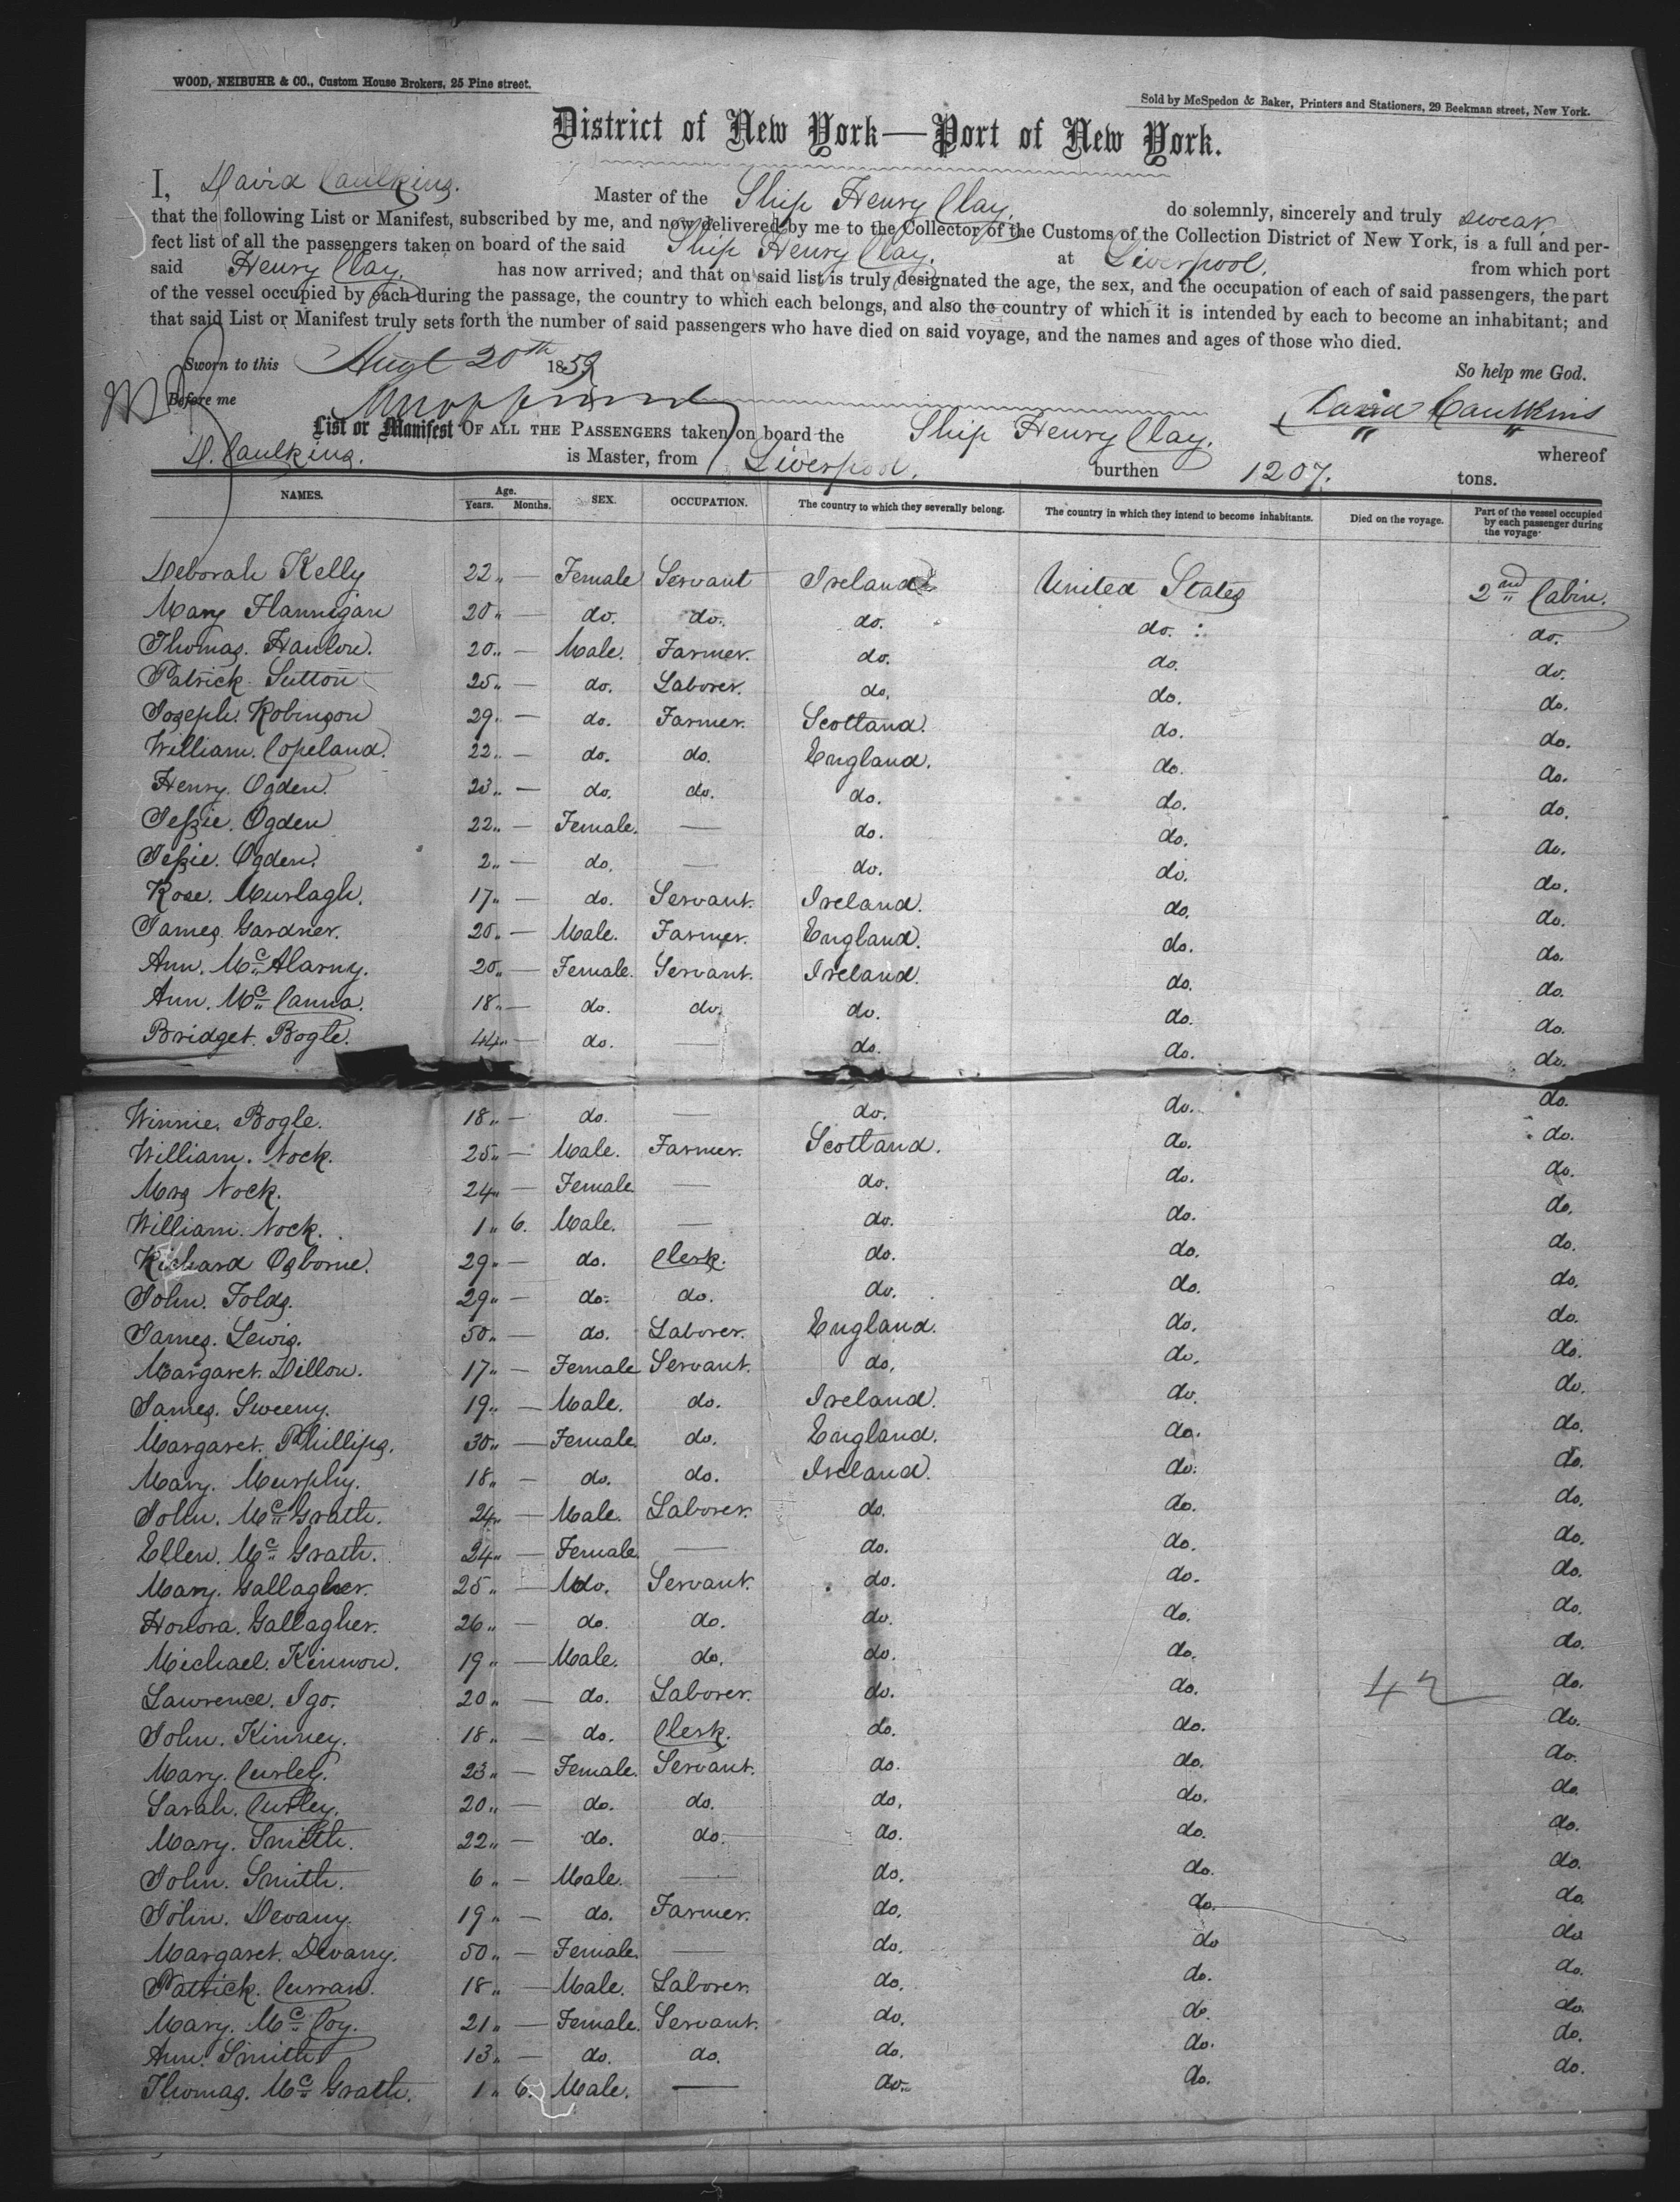 WOOD, NEIBUHR & CO., Custom House Brokers, 25 Pine street.
Sold by McSpedon & Baker, Printers and Stationers, 29 Beekman street, New York.
District of New York—Port of New York.
I, David Caulkins. Master of the Ship Henry Clay. do solemnly, sincerely and truly swear,
that the following List or Manifest, subscribed by me, and now delivered by me to the Collector of the Customs of the Collection District of New York, is a full and per-
fect list of all the passengers taken on board of the said Ship Henry Clay. at Liverpool. from which port
said Henry Clay. has now arrived; and that on said list is truly designated the age, the sex, and the occupation of each of said passengers, the part
of the vessel occupied by each during the passage, the country to which each belongs, and also the country of which it is intended by each to become an inhabitant; and
that said List or Manifest truly sets forth the number of said passengers who have died on said voyage, and the names and ages of those who died.
Sworn to this Augt 20th 1859 So help me God.
Before me David Caulkins
List or Manifest OF ALL THE PASSENGERS taken on board the Ship Henry Clay. whereof
D. Caulkins. is Master, from Liverpool. burthen 1207. tons.
NAMES. Age. Years. Months. SEX. OCCUPATION. The country to which they severally belong. The country in which they intend to become inhabitants. Died on the voyage. Part of the vessel occupied by each passenger during the voyage.
Deborah Kelly 22 „ — Female Servant Ireland United States 2nd Cabin.
Mary Flannigan 20 „ — do. do. do. do. do.
Thomas. Hanlon. 20 „ — Male. Farmer. do. do. do.
Patrick Sutton 25 „ — do. Laborer. do. do. do.
Joseph. Robinson 29 „ — do. Farmer. Scotland. do. do.
William. Copeland. 22 „ — do. do. England. do. do.
Henry. Ogden. 23 „ — do. do. do. do. do.
Jessie. Ogden 22 „ — Female. — do. do. do.
Jessie. Ogden. 2 „ — do. — do. do. do.
Rose. Murtagh. 17 „ — do. Servant. Ireland. do. do.
James. Gardner. 20 „ — Male. Farmer. England. do. do.
Ann. McAlarny. 20 „ — Female. Servant. Ireland. do. do.
Ann. McCanna. 18 „ — do. do. do. do. do.
Bridget. Bogle. 44 „ — do. — do. do. do.
Winnie. Bogle. 18 „ — do. — do. do. do.
William. Nock. 25 „ — Male. Farmer. Scotland. do. do.
Mrs Nock. 24 „ — Female — do. do. do.
William. Nock. 1 „ 6. Male. — do. do. do.
Richard Osborne. 29 „ — do. Clerk. do. do. do.
John. Folds. 29 „ — do. do. do. do. do.
James. Lewis. 50 „ — do. Laborer. England. do. do.
Margaret. Dillon. 17 „ — Female Servant. do. do. do.
James. Sweeny. 19 „ — Male. do. Ireland. do. do.
Margaret. Phillips. 30 „ — Female. do. England. do. do.
Mary. Murphy. 18 „ — do. do. Ireland. do. do.
John. McGrath. 24 „ — Male. Laborer. do. do. do.
Ellen. McGrath. 24 „ — Female. — do. do. do.
Mary. Gallagher. 25 „ — do. Servant. do. do. do.
Honora. Gallagher. 26 „ — do. do. do. do. do.
Michael. Kinnon. 19 „ — Male. do. do. do. do.
Lawrence. Igo. 20 „ — do. Laborer. do. do. 42 do.
John. Kinney. 18 „ — do. Clerk. do. do. do.
Mary. Curley. 23 „ — Female. Servant. do. do. do.
Sarah. Curley. 20 „ — do. do. do. do. do.
Mary. Smith. 22 „ — do. do. do. do. do.
John. Smith. 6 „ — Male. — do. do. do.
John. Devany. 19 „ — do. Farmer. do. do. do.
Margaret. Devany. 50 „ — Female. — do. do do
Patrick. Curran. 18 „ — Male. Laborer. do. do. do.
Mary. McCoy. 21 „ — Female. Servant. do. do. do.
Ann. Smith 13 „ — do. do. do. do. do.
Thomas. McGrath. 1 „ 6. Male. — do. do. do.